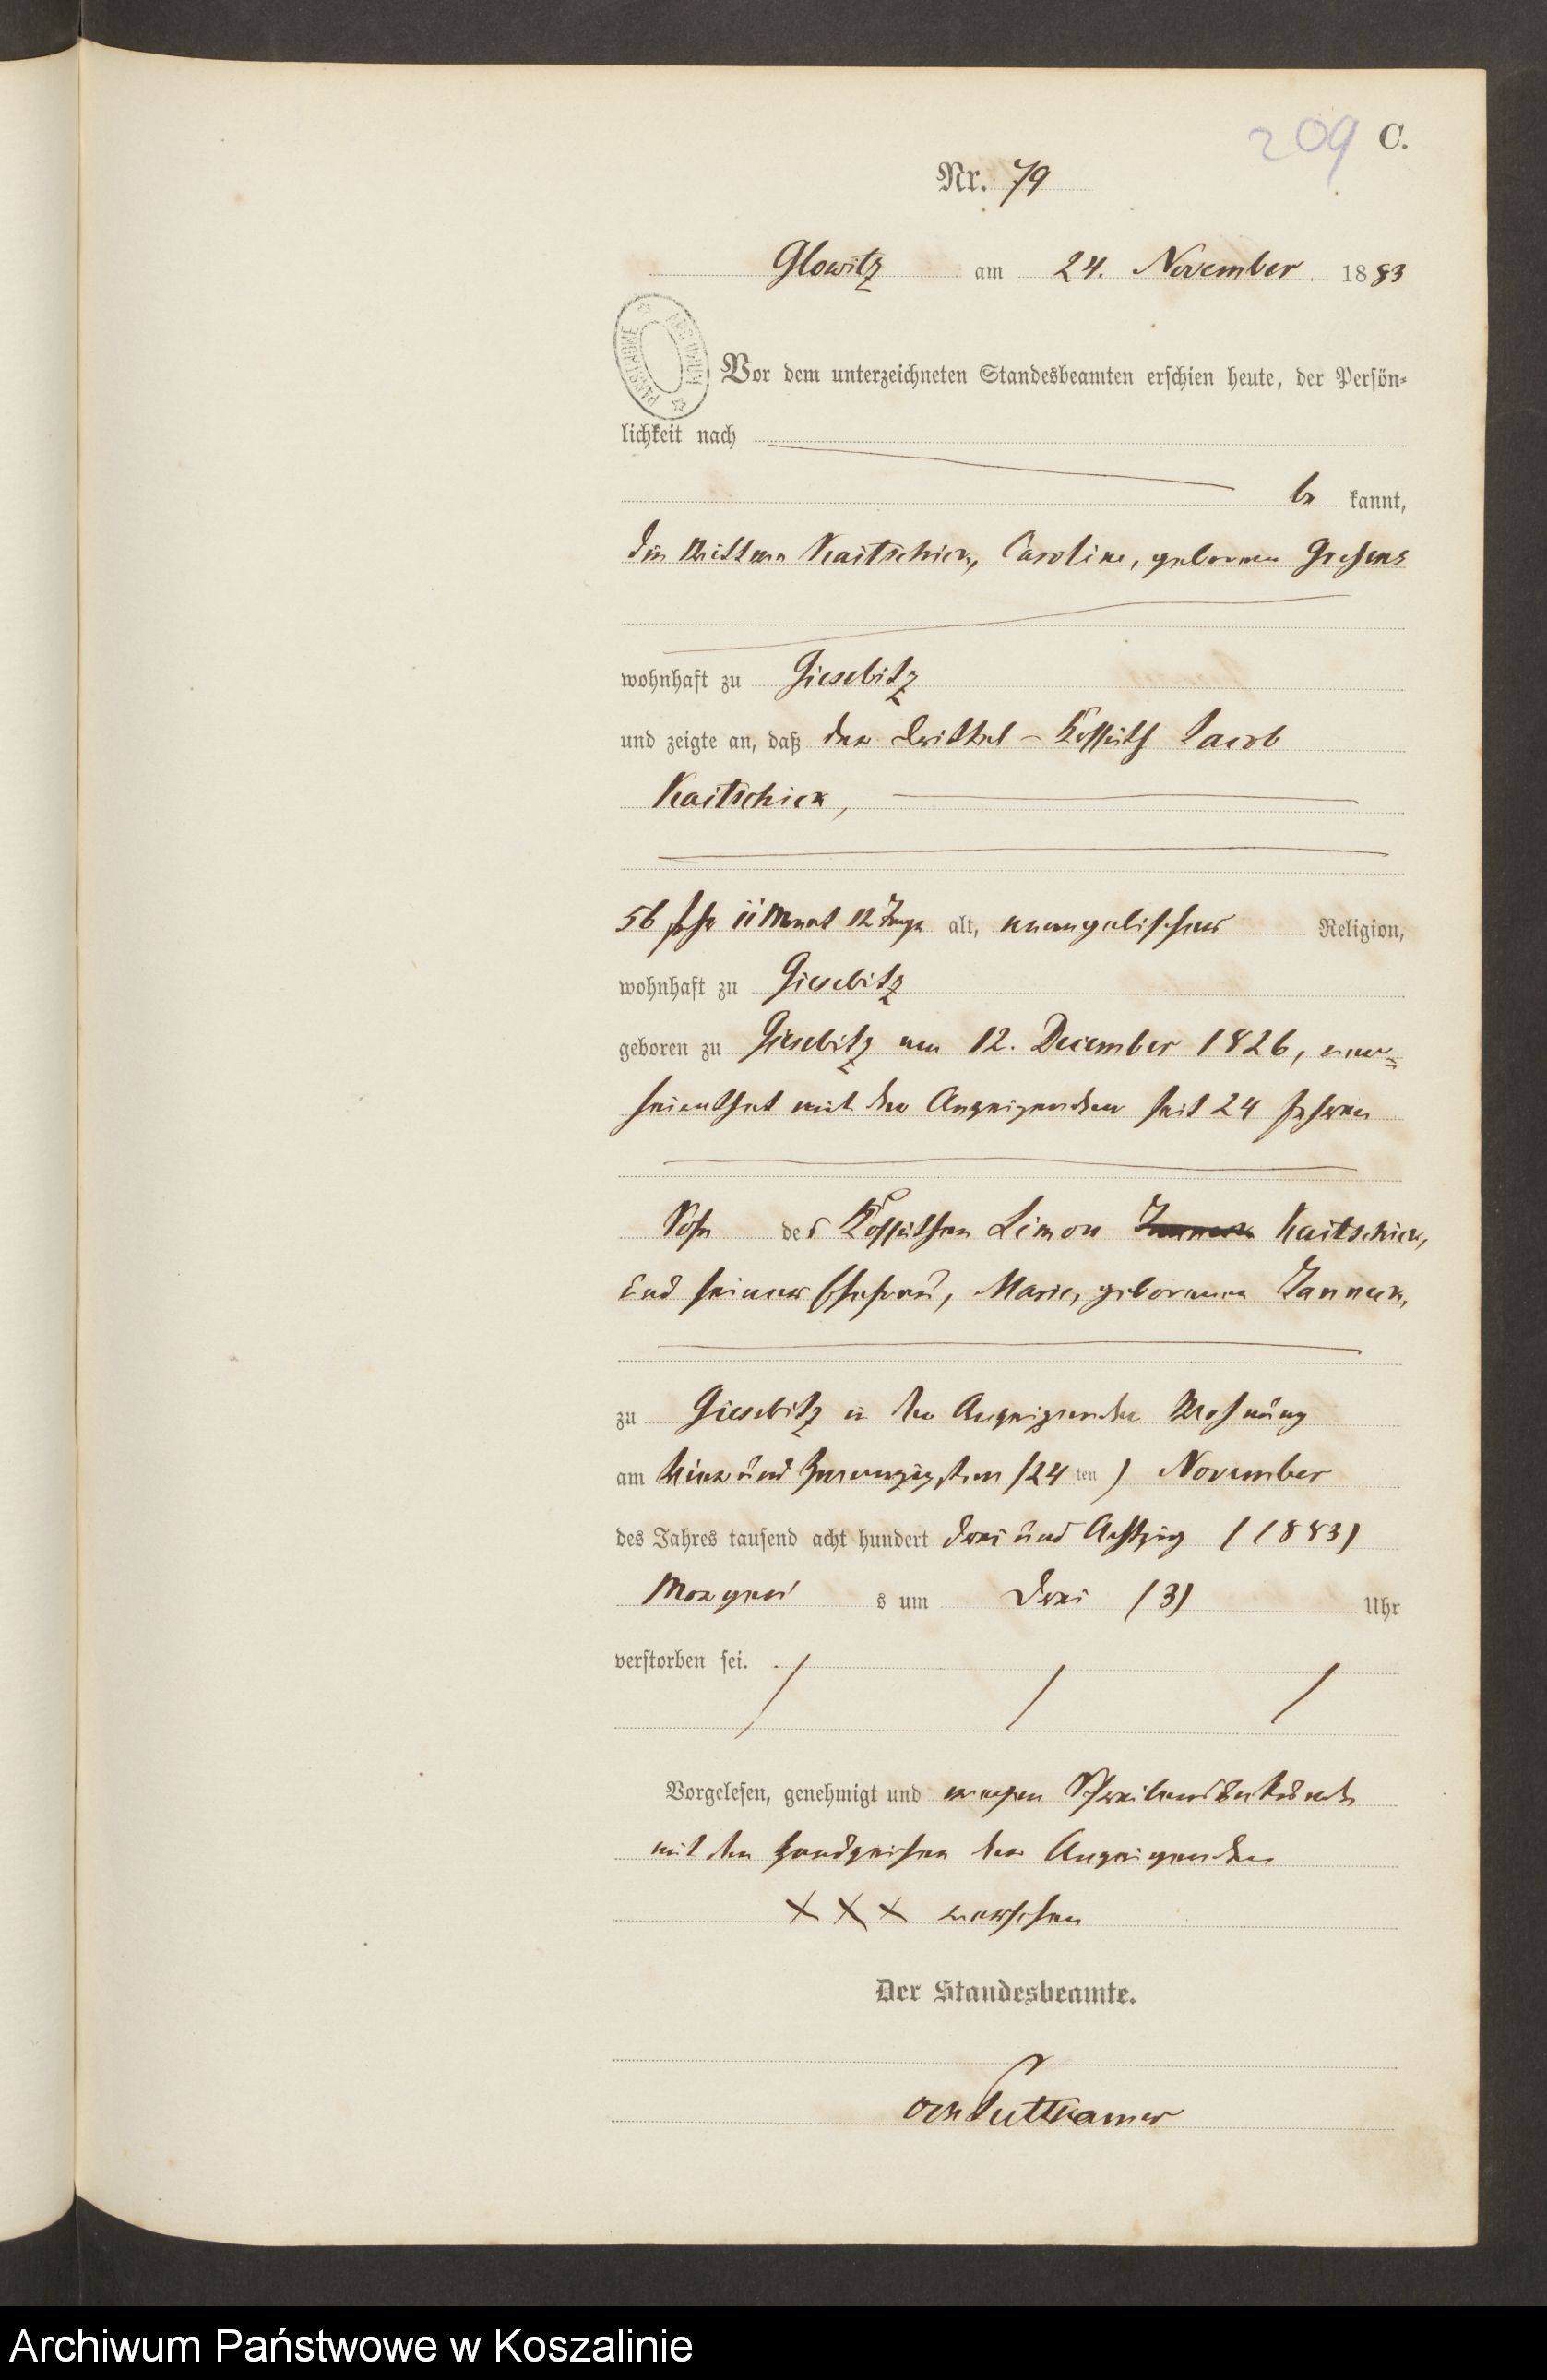 209 C.
Nr. 79
Glowitz am 24. November 1883
PAŃSTWOWE ARCHIWUM
Vor dem unterzeichneten Standesbeamten erschien heute, der Persön-
lichkeit nach
be kannt,
die Wittwe Kaitschick, Caroline, geborene
wohnhaft zu Giesebitz
und zeigte an, daß der Drittel-Kossäth Jacob
Kaitschick,
56 Jahr 11 Monat 12 Tage alt, evangelischer Religion,
wohnhaft zu Giesebitz
geboren zu Giesebitz am 12. December 1826, ver-
heirathet mit der Anzeigenden seit 24 Jahren
Sohn des Kossäthen Simon Kaitschick,
und seiner Ehefrau, Marie, geborenen Janneck,
zu Giesebitz in der Anzeigenden Wohnung
am vier und zwanzigsten (24 ten) November
des Jahres tausend acht hundert drei und Achtzig (1883)
Morgens s um drei (3) Uhr
verstorben sei.
Vorgelesen, genehmigt und wegen Schreibensunkunde
mit den Handzeichen der Anzeigenden
XXX versehen
Der Standesbeamte.
von Puttkamer
Archiwum Państwowe w Koszalinie